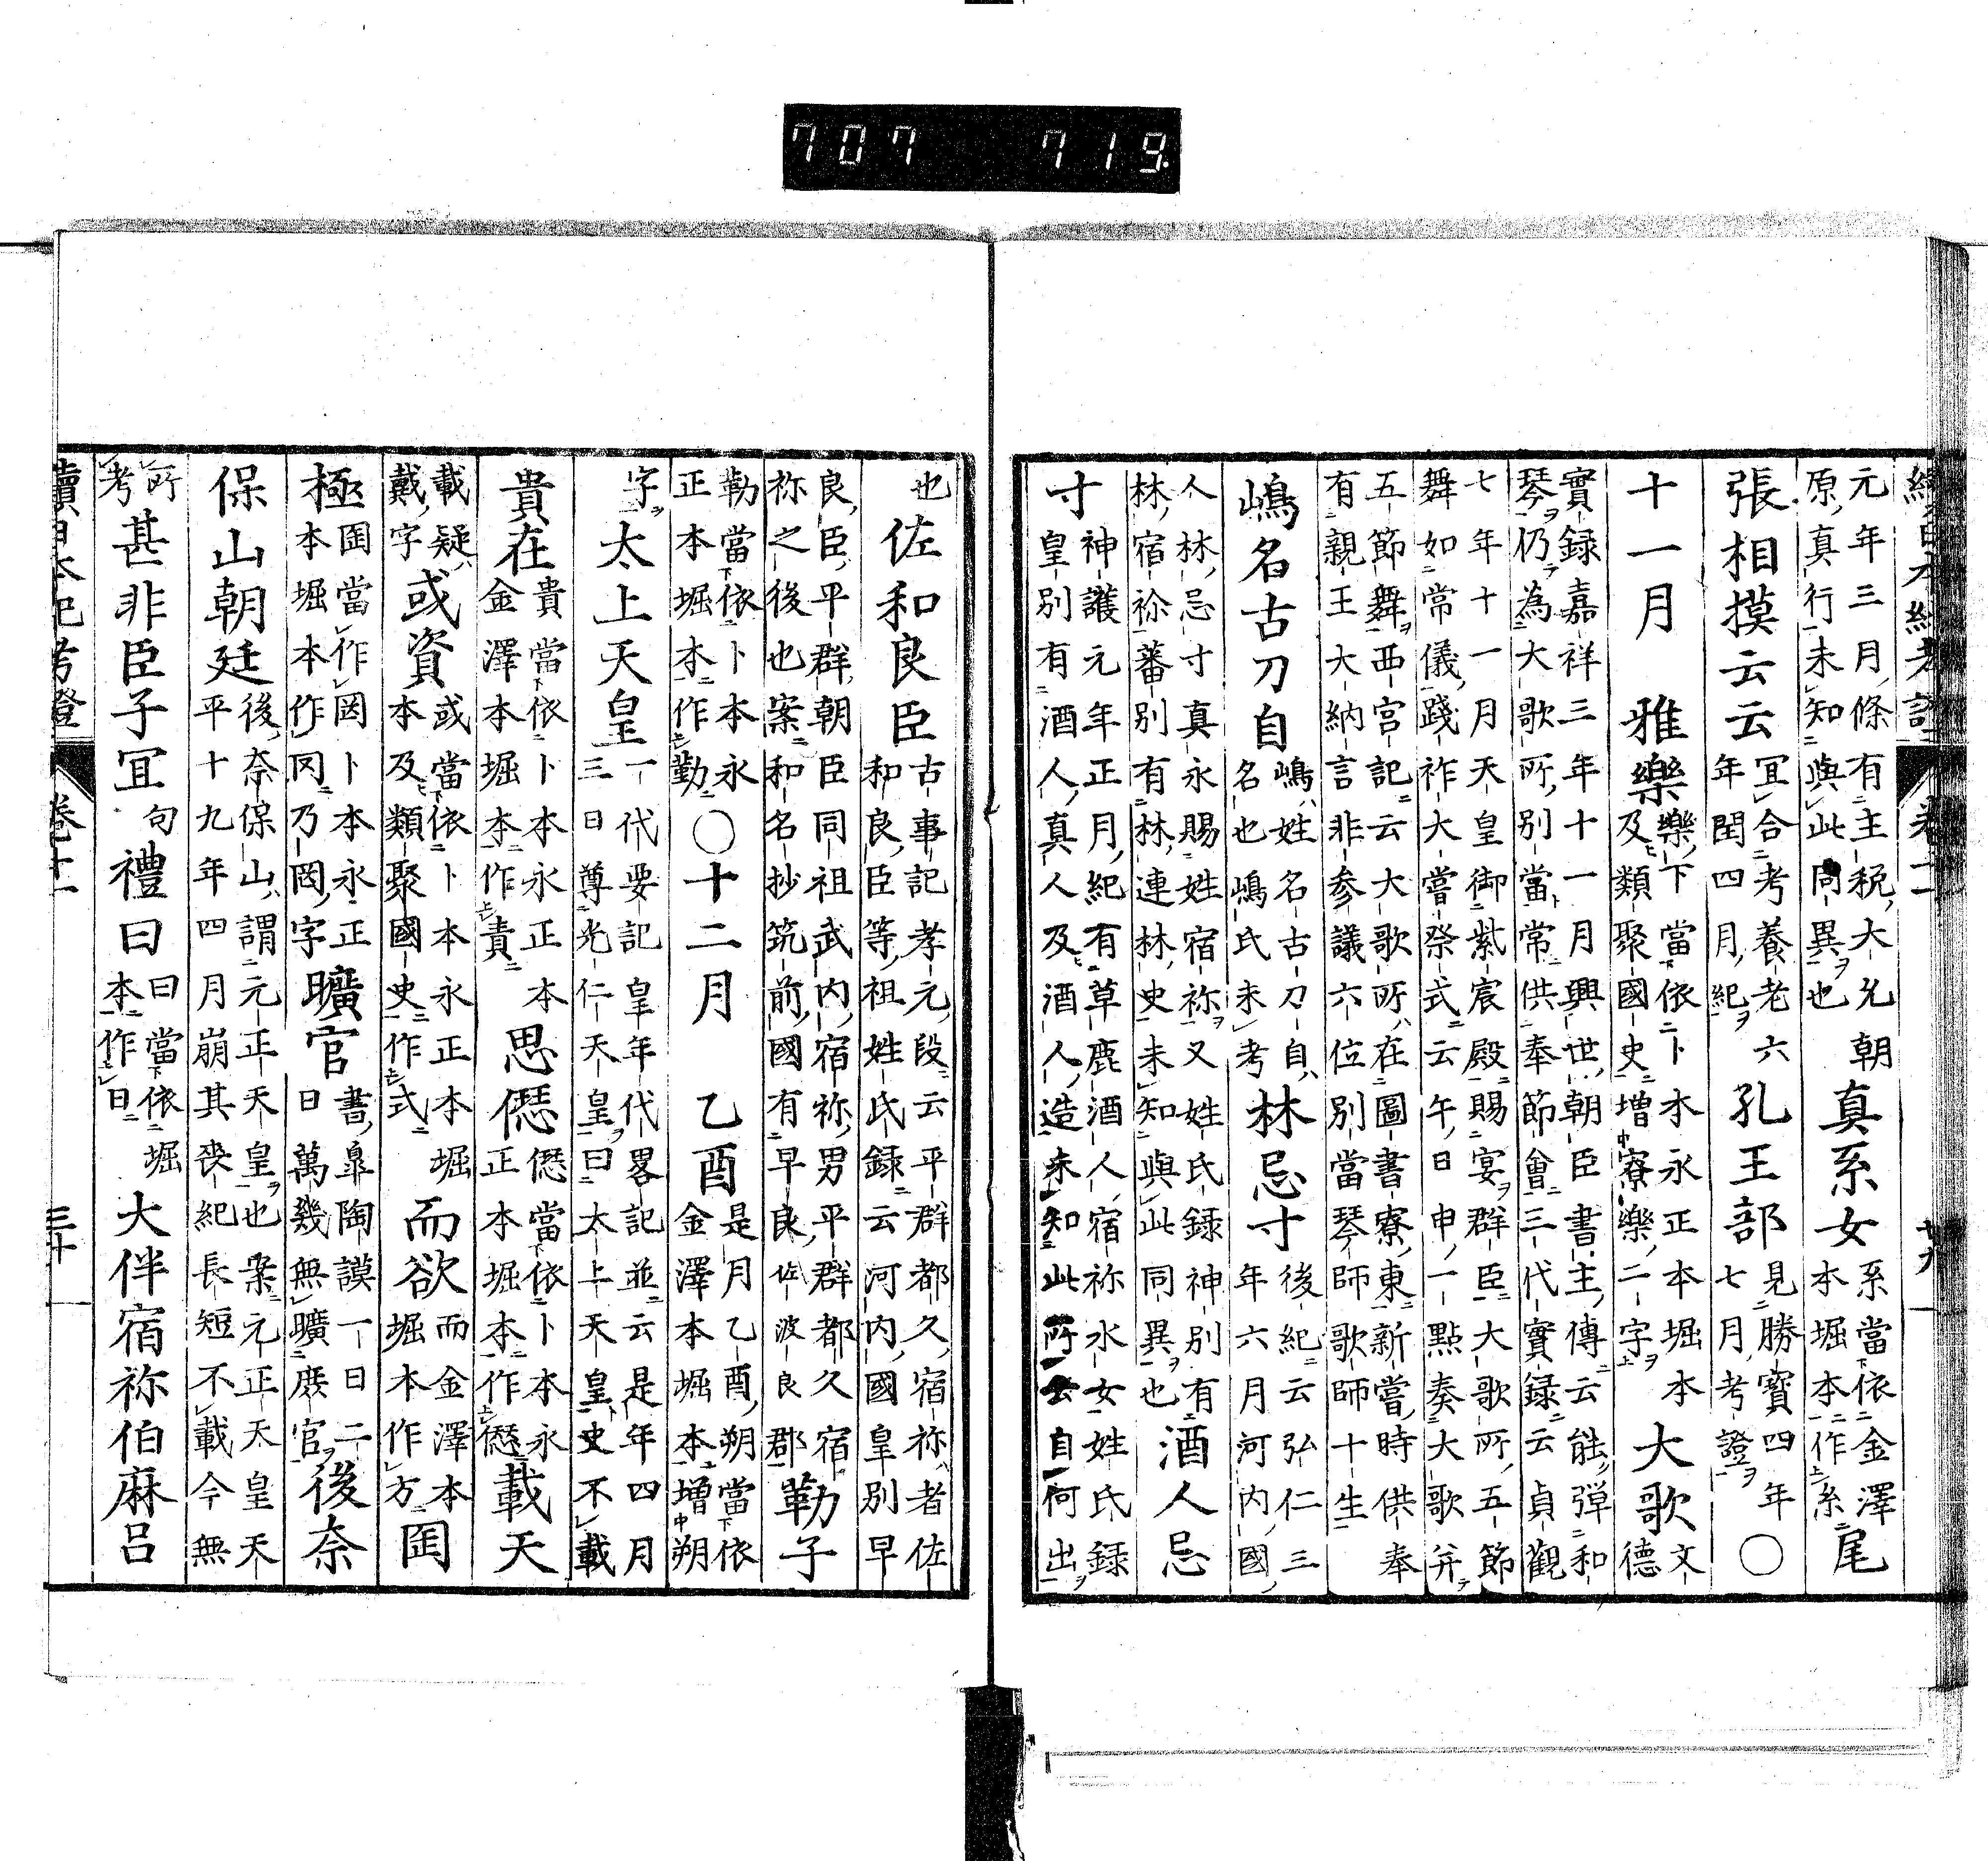 續日本紀考證 卷十一 廿九
元年三月條有主税大允朝
原真行未知與此同異也
真系女
系當依金澤
本堀本作糸
尾
張相摸云云
冝合考養老六
年閏四月紀
孔王部
見勝寶四年
七月考證
○
十一月 雅樂
樂下當依卜本永正本堀本
及類聚國史增寮樂二字
大歌
文
德
實録嘉祥三年十一月興世朝臣書主傳云能弾和
琴仍為大歌所別當常供奉節會三代實録云貞觀
七年十一月天皇御紫宸殿賜宴群臣大歌所五節
舞如常儀踐祚大嘗祭式云午日申一點奏大歌并
五節舞西宮記云大歌所在圖書寮東新嘗時供奉
有親王大納言非参議六位別當琴師歌師十生
嶋名古刀自
嶋姓名古刀自
名也嶋氏未考
林忌寸
後紀云弘仁三
年六月河内國
人林忌寸真永賜姓宿祢又姓氏録神別有
林宿祢蕃別有林連林史未知與此同異也
酒人忌
寸
神護元年正月紀有草鹿酒人宿祢水女姓氏録
皇別有酒人真人及酒人造未知此所云自何出
也
佐和良臣
古事記孝元段云平群都久宿祢者佐
和良臣等祖姓氏録云河内國皇別早
良臣平群朝臣同祖武内宿祢男平群都久宿
祢之後也案和名抄筑前國有早良佐波良郡
勒子
勒當依卜本永
正本堀本作勤
○十二月 乙酉
是月乙酉朔當依
金澤本堀本增朔
字
太上天皇
一代要記皇年代畧記並云是年四月
三日尊光仁天皇曰太上天皇史不載
貴在
貴當依卜本永正本
金澤本堀本作責
思僁
僁當依卜本永
正本堀本作愆
載天
載疑
戴字
或資
或當依卜本永正本堀
本及類聚國史作式
而欲
而金澤本
堀本作方
囯
極
囯當作罔卜本永正
本堀本作罔乃罔字
曠官
書皐陶謨一日二
日萬幾無曠庶官
後奈
保山朝廷
後奈保山謂元正天皇也案元正天皇天
平十九年四月崩其喪紀長短不載今無
所
考
甚非臣子冝
句
禮曰
曰當依堀
本作日
大伴宿祢伯麻呂
續日本紀考證 卷十一 三十
707 719